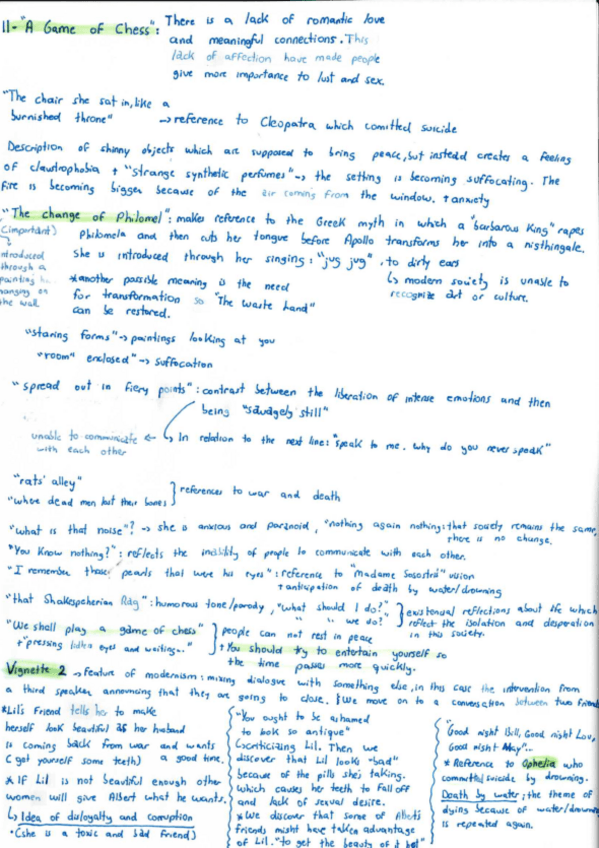 II- "A Game of Chess": There is a lack of romantic love
and meaningful connections. This
lack of affection have made people
give more importance to lust and sex.
"The chair she sat in, like a
burnished throne" → reference to Cleopatra which comitted suicide
Description of shinny objects which are supposed to bring peace, but instead creates a feeling
of claustrophobia + "strange synthetic perfumes" → the setting is becoming suffocating. The
fire is becoming bigger because of the air coming from the window. + anxiety
"The change of Philomel": makes reference to the Greek myth in which a "barbarous King" rapes
(important)
Philomela and then cuts her tongue before Apollo transforms her into a nigthingale.
She is introduced through her singing: "jug jug". to dirty ears
↳ modern society is unable to
recognize art or culture.
introduced
through a
painting
hanging on
the wall
*another possible meaning is the need
for transformation so "The Waste Land"
can be restored.
"staring forms" → paintings looking at you
"room enclosed" → suffocation
"spread out in fiery points": contrast between the liberation of intense emotions and then
being "savagely still"
unable to communicate ← ↳ In relation to the next line: "speak to me. Why do you never speak"
with each other
"rats' alley"
"where dead men lost their bones" } references to war and death
"what is that noise"? → she is anxious and paranoid, "nothing again nothing: that society remains the same,
there is no change.
"You know nothing?": reflects the inability of people to communicate with each other.
"I remember those pearls that were his eyes": reference to "Madame Sosostris" vision
+ anticipation of death by water/drowning
"that Shakespeherian Rag": humorous tone/parody, "what should I do?",
" " we do?" } existential reflections about life which
reflect the isolation and desperation
in this society.
"We shall play a game of chess"
+ "pressing lidless eyes and waiting..." } people can not rest in peace
+ You should try to entertain yourself so
the time passes more quickly.
Vignette 2 → feature of modernism: mixing dialogue with something else, in this case the intervention from
a third speaker announcing that they are going to close. We move on to a conversation between two friends
*Lil's Friend tells her to make
herself look beautiful as her husband
is coming back from war and wants
(get yourself some teeth) a good time.
* If Lil is not beautiful enough other
women will give Albert what he wants.
↳ Idea of disloyalty and corruption
(she is a toxic and bad friend)
"You ought to be ashamed
to look so antique"
↳ criticizing Lil. Then we
discover that Lil looks "bad"
because of the pills she's taking.
which causes her teeth to fall off
and lack of sexual desire.
* We discover that some of Albert's
friends might have taken advantage
of Lil. "to get the beauty of it hot"
"Good night Bill, Good night Lou,
Good night May"...
* Reference to Ophelia who
committed suicide by drowning.
Death by water: the theme of
dying because of water/drowning
is repeated again.